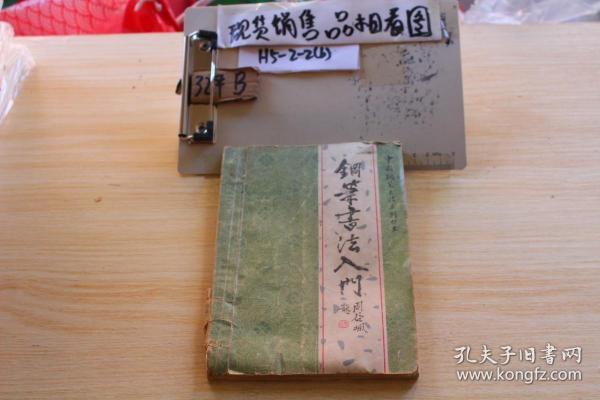 现货销售 品相看图
H5-2-2(6)
132平B
鋼筆書法入門
孔夫子旧书网
www.kongfz.com